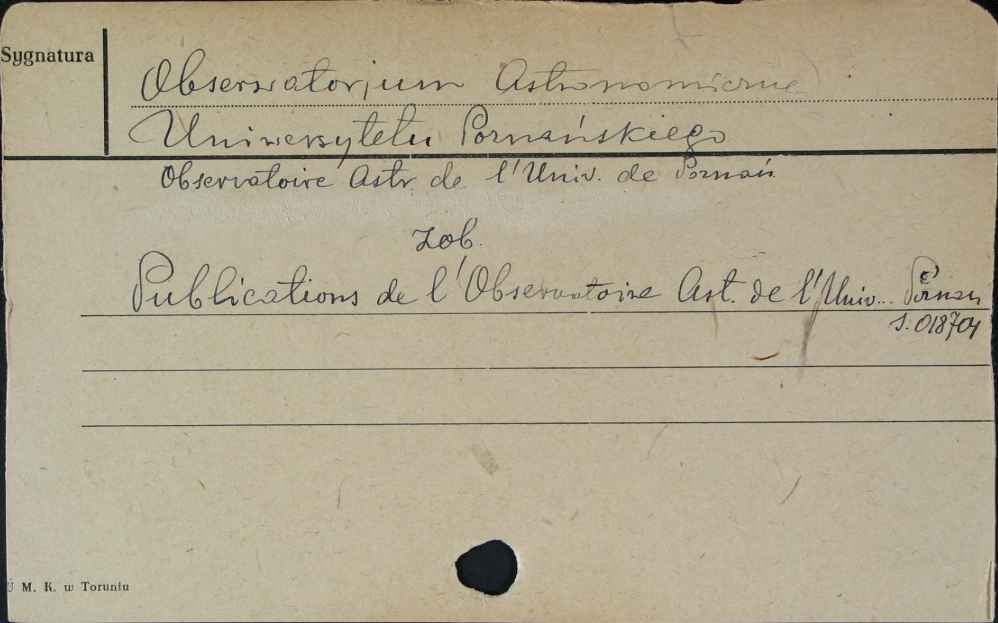 Sygnatura
Obserwatorjum Astronomiczne
Uniwersytetu Poznańskiego
Observatoire Astr. de l'Univ. de Poznań
zob.
Publications de l'Observatoire Ast. de l'Univ... Poznań
S. 018704
U M. K. w Toruniu